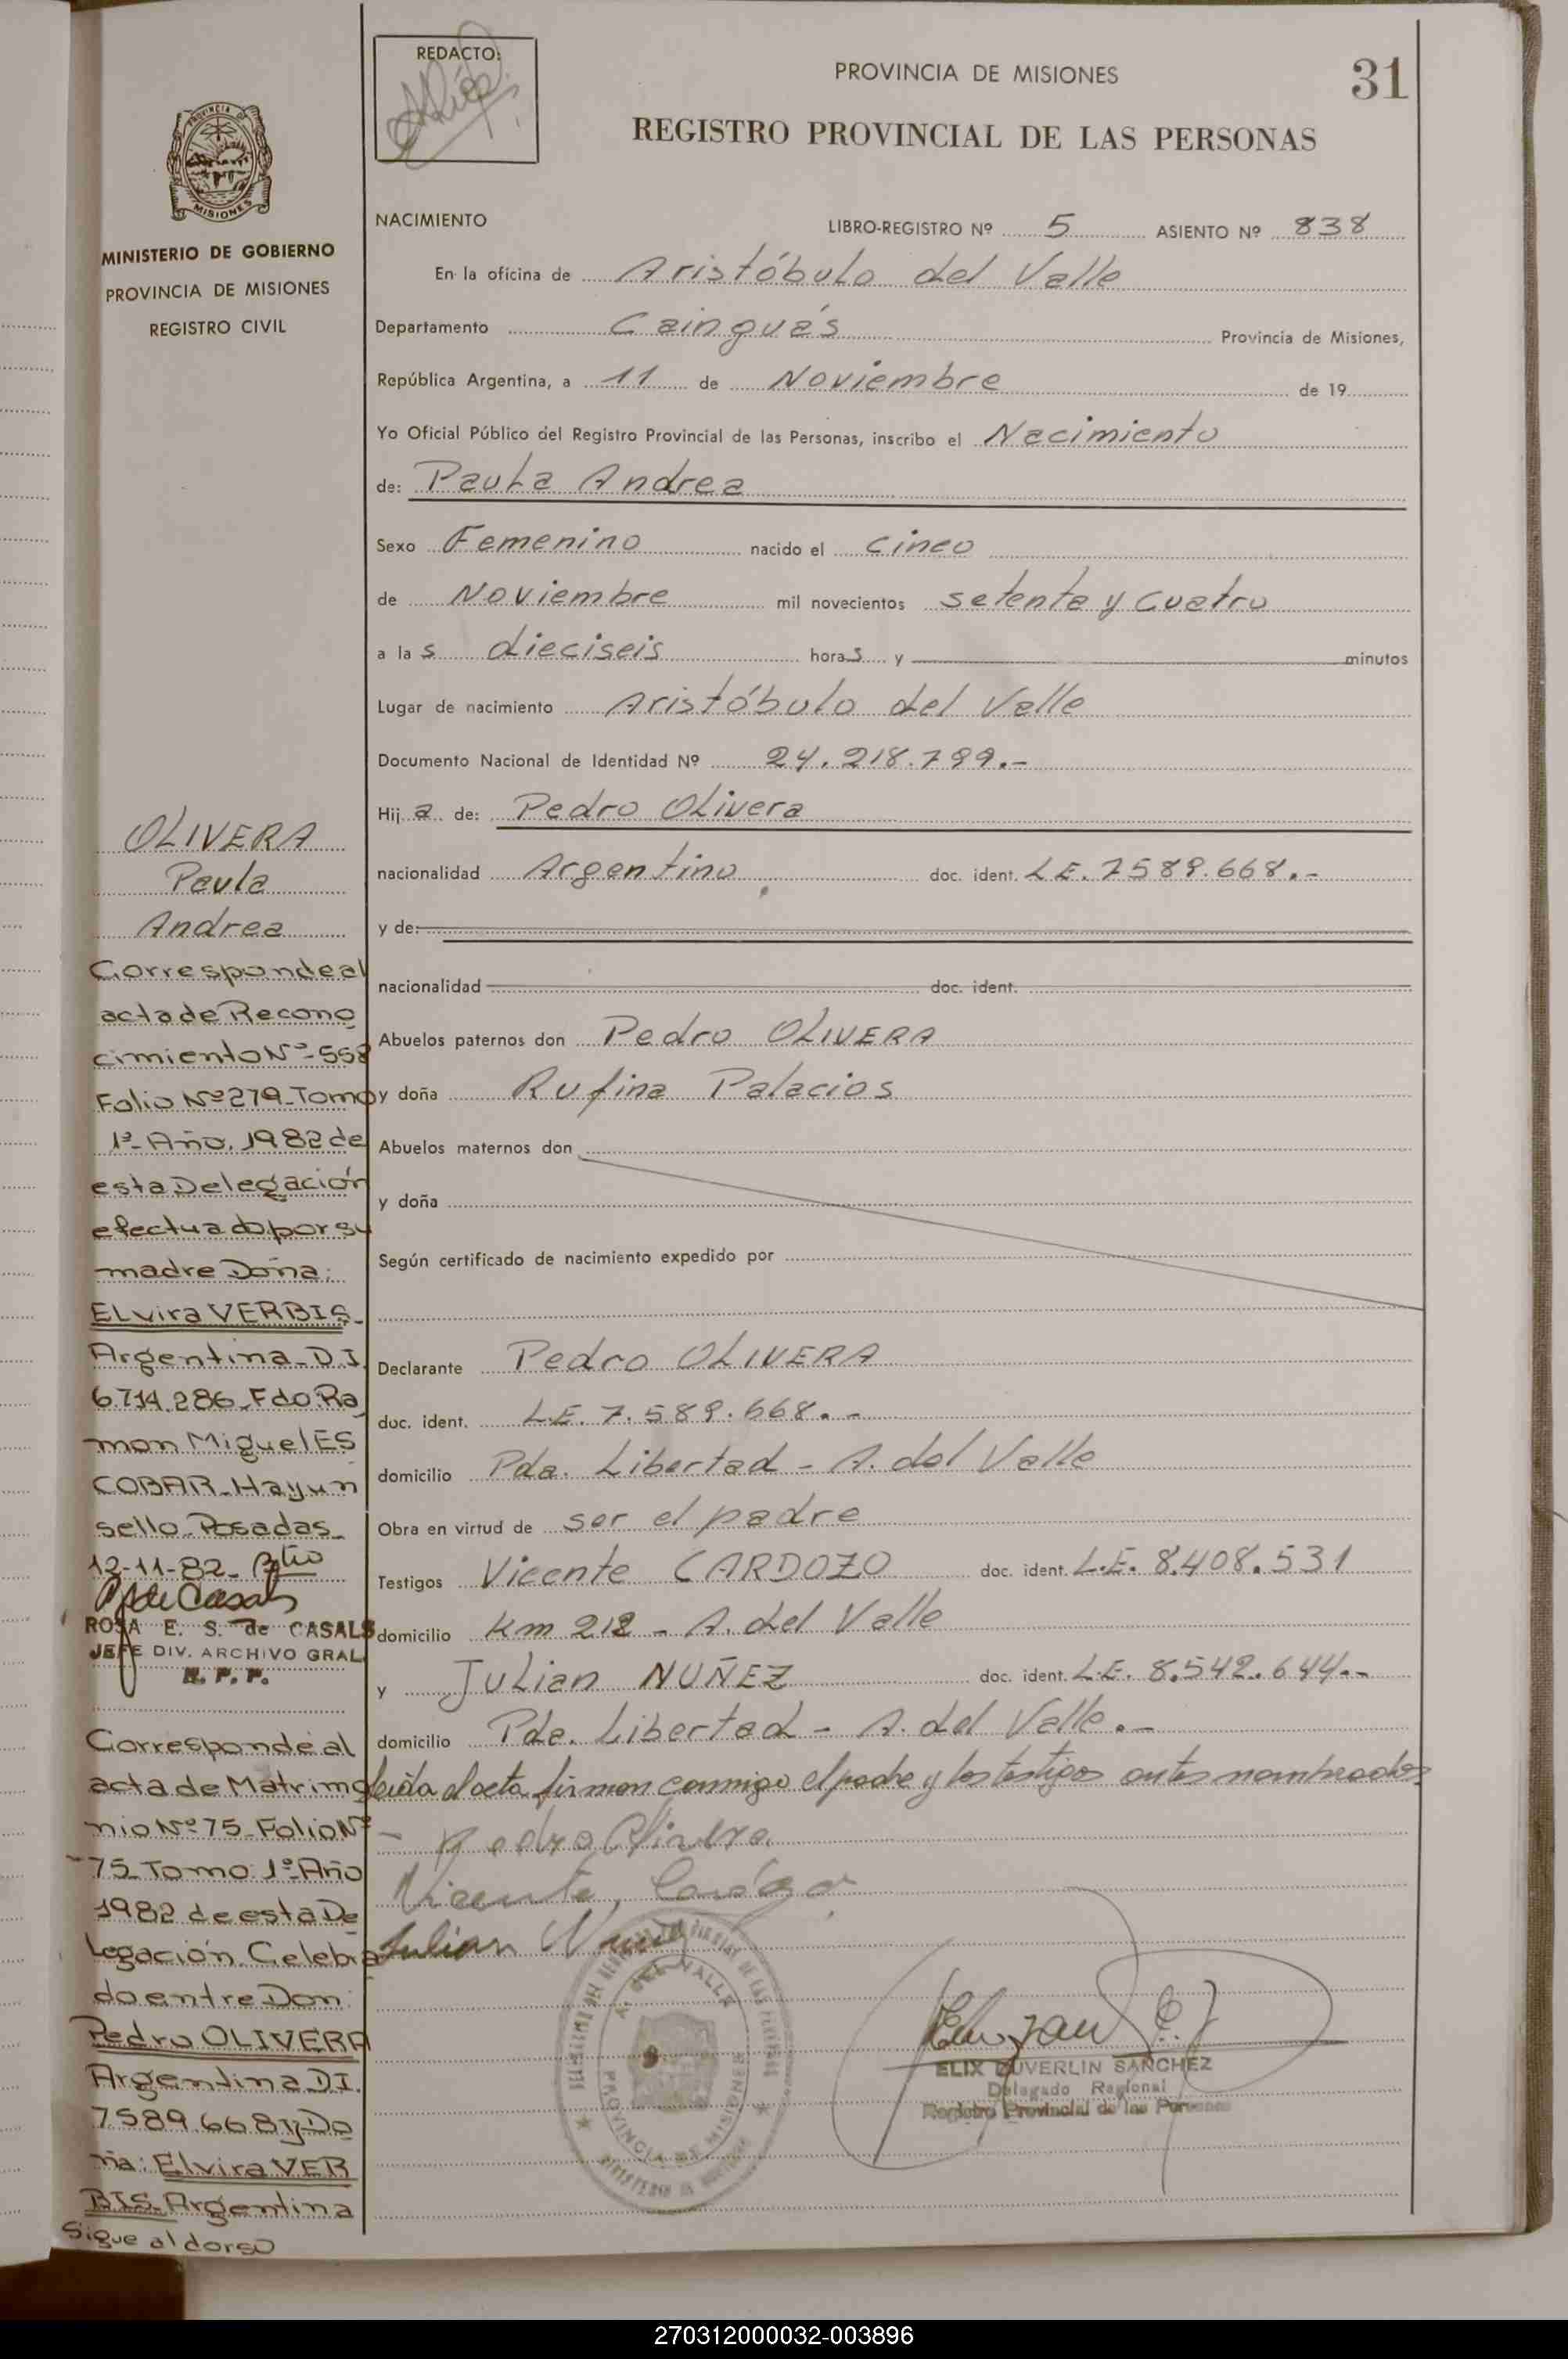 REDACTO:
PROVINCIA DE MISIONES
31
REGISTRO PROVINCIAL DE LAS PERSONAS
PROVINCIA DE
MISIONES
MINISTERIO DE GOBIERNO
PROVINCIA DE MISIONES
REGISTRO CIVIL
NACIMIENTO
LIBRO-REGISTRO Nº 5 ASIENTO Nº 838
En la oficina de Aristóbulo del Valle
Departamento Cainguás Provincia de Misiones,
República Argentina, a 11 de Noviembre de 19
Yo Oficial Público del Registro Provincial de las Personas, inscribo el Nacimiento
de: Paula Andrea
Sexo Femenino nacido el cinco
de Noviembre mil novecientos setenta y cuatro
a las dieciseis horas y minutos
Lugar de nacimiento Aristóbulo del Valle
Documento Nacional de Identidad Nº 24.218.799.-
Hija de: Pedro Olivera
nacionalidad Argentino doc. ident. L.E. 7589.668.-
y de:
nacionalidad doc. ident.
Abuelos paternos don Pedro OLIVERA
y doña Rufina Palacios
Abuelos maternos don
y doña
Según certificado de nacimiento expedido por
Declarante Pedro OLIVERA
doc. ident. L.E. 7.589.668.-
domicilio Pda. Libertad - A. del Valle
Obra en virtud de ser el padre
Testigos Vicente CARDOZO doc. ident. L.E. 8.408.531
domicilio Km 212 - A. del Valle
y Julian NUÑEZ doc. ident. L.E. 8.542.644.-
domicilio Pda. Libertad - A. del Valle.-
leida el acta firman conmigo el padre y los testigos antes nombrados
- Pedro Olivera
Vicente Cardozo
Julian Nuñez
A. DEL VALLE
PROVINCIA DE MISIONES
ELIX DUVERLIN SANCHEZ
Delegado Regional
Registro Provincial de las Personas
OLIVERA
Paula
Andrea
Corresponde al
acta de Recono
cimiento Nº-558
Folio Nº279-Tomo
1º-Año.1982 de
esta Delegación
efectuado por su
madre Doña:
ELvira VERBIS-
Argentina-D.I.
6.714.286-Fdo.Ra
mon Miguel ES
COBAR-Hay un
sello-Posadas-
12-11-82-
ROSA E. S. de CASALS
JEFE DIV. ARCHIVO GRAL.
R. P. P.
Corresponde al
acta de Matrimo
nio Nº75-Folio Nº
75-Tomo:1º-Año
1982 de esta De
legación. Celebra
do entre Don:
Pedro OLIVERA
Argentina D.I.
7589.668 y Do
ña: Elvira VER
BIS-Argentina
Sigue al dorso
270312000032-003896